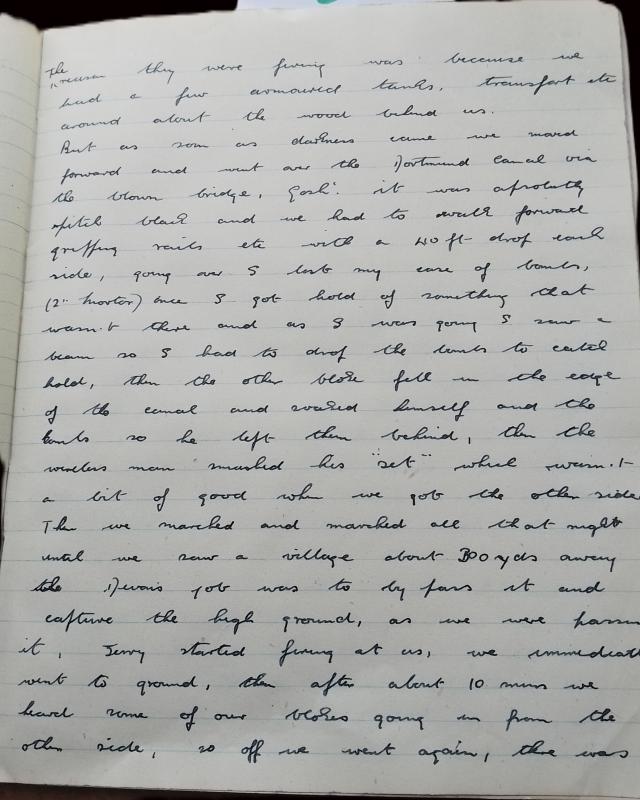 The reason they were firing was because we
had a few armoured tanks, transport etc
around about the wood behind us.
But as soon as darkness came we moved
forward and went over the Dortmund Canal via
the blown bridge, Gosh! it was absolutly
pitch black and we had to walk forward
gripping rails etc with a 40 ft drop each
side, going over I lost my case of bombs,
(2" mortor) once I got hold of something that
wasn't there and as I was going I saw a
beam so I had to drop the bombs to catch
hold, then the other bloke fell in the edge
of the canal and soaked himself and the
bombs so he left them behind, then the
wireless man smashed his "set" which wasn't
a bit of good when we got the other side
Then we marched and marched all that night
until we saw a village about 300 yds away
the Devons job was to by pass it and
capture the high ground, as we were passin
it, Jerry started firing at us, we immediatl
went to ground, then after about 10 mins we
heard some of our blokes going in from the
other side, so off we went again, there was